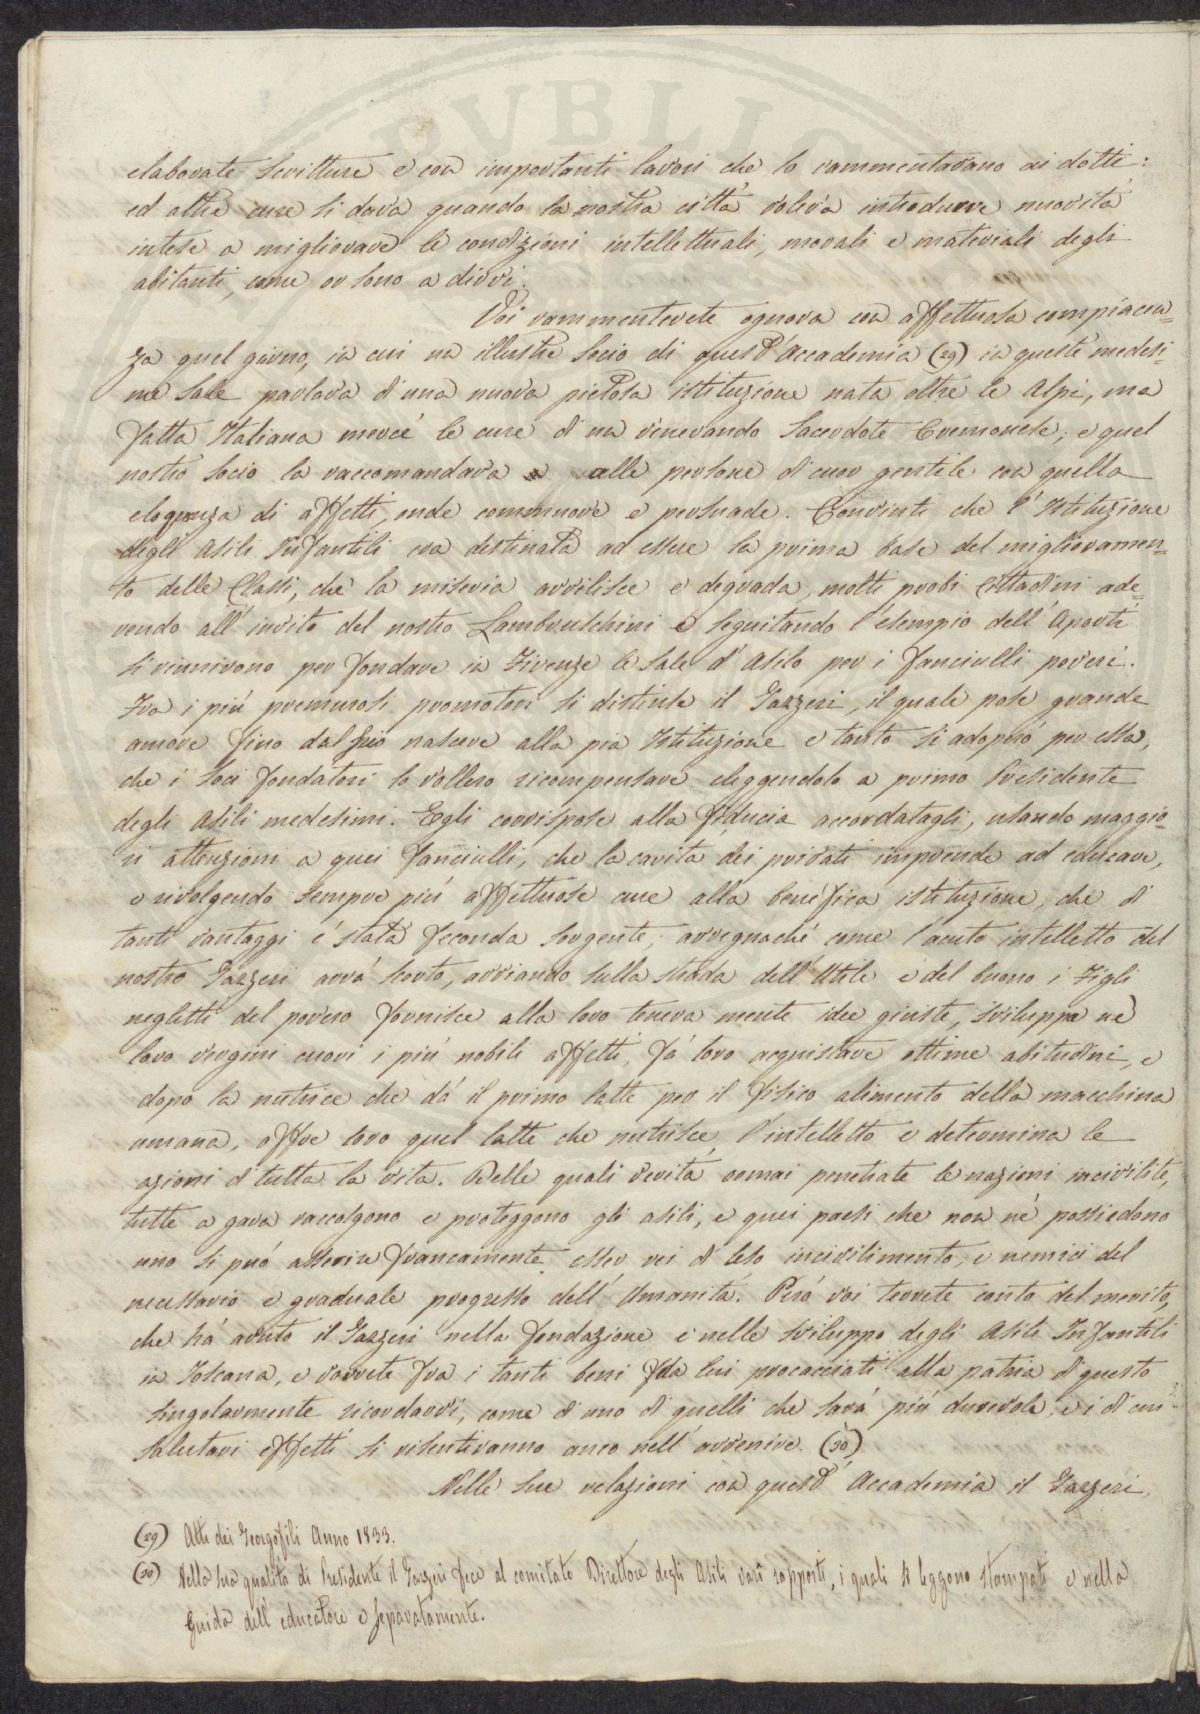 PVBLIC
elaborate scritture e con importanti lavori che lo rammentavano ai dotti:
ed altre cure si dava quando la nostra città voleva introdurre nuovità
intese a migliorare le condizioni intellettuali, morali e materiali degli
abitanti, come or sono a dirvi.
Voi rammenterete ognora con affettuosa compiacen=
za quel giorno, in cui un illustre socio di quest'Accademia (29) in queste medesi=
me sale parlava d'una nuova pietosa istituzione nata oltre le Alpi, ma
fatta Italiana mercé le cure d'un venerando Sacerdote Cremonese; e quel
nostro socio la raccomandava alle persone di cuor gentile con quella
eloquenza di affetti, onde commuove e persuade. Convinti che l'Istituzione
degli Asili Infantili era destinata ad essere la prima base del miglioramen=
to delle Classi, che la miseria avvilisce e degrada, molti probi Cittadini ade=
rendo all'invito del nostro Lambruschini e seguitando l'esempio dell'Aporti
si riunirono per fondare in Firenze le sale d'Asilo per i fanciulli poveri.
Fra i più premurosi promotori si distinse il Gazzeri, il quale pose grande
amore fino dal suo nascere alla pia Istituzione e tanto si adoperò per essa,
che i soci fondatori lo vollero ricompensare eleggendolo a primo Presidente
degli Asili medesimi. Egli corrispose alla fiducia accordatagli, usando maggio=
ri attenzioni a quei fanciulli, che la carità dei privati imprende ad educare,
e rivolgendo sempre più affettuose cure alla benefica istituzione, che di
tanti vantaggi è stata feconda sorgente; avvegnaché come l'acuto intelletto del
nostro Gazzeri avrà scorto, avviando sulla strada dell'Utile e del buono i Figli
negletti del povero fornisce alla loro tenera mente idee giuste, sviluppa ne'
loro vergini cuori i più nobili affetti, fà loro acquistare ottime abitudini, e
dopo la nutrice che dà il primo latte per il fisico alimento della macchina
umana, offre loro quel latte che nutrisce l'intelletto e determina le
azioni di tutta la vita. Delle quali verità ormai penetrate le nazioni incivilite,
tutte a gara raccolgono e proteggono gli asili, e quei paesi che non né possiedono
uno si può asserire francamente esser rei di leso incivilimento, e nemici del
necessario e graduale progresso dell'Umanità. Però voi terrete conto del merito,
che hà avuto il Gazzeri nella fondazione e nello sviluppo degli Asili Infantili
in Toscana, e vorrete fra i tanti beni da lui procacciati alla patria di questo
singolarmente ricordarvi, come d'uno di quelli che sarà più durevole, e i di cui
salutari effetti si risentiranno anco nell'avvenire. (30)
Nelle sue relazioni con quest'Accademia il Gazzeri,
(29) Atti dei Georgofili Anno 1833.
(30) Nella sua qualità di Presidente il Gazzeri fece al comitato Direttore degli Asili varî rapporti, i quali si leggono stampati e nella
Guida dell'educatore e separatamente.